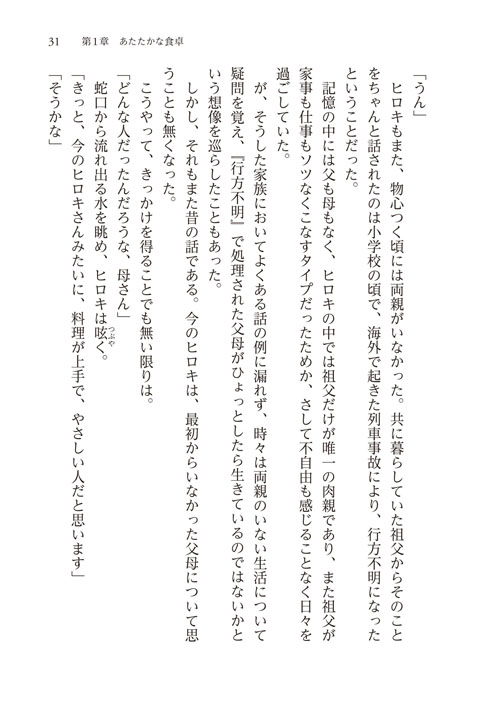 31　第1章　あたたかな食卓
「うん」
　ヒロキもまた、物心つく頃には両親がいなかった。共に暮らしていた祖父からそのこと
をちゃんと話されたのは小学校の頃で、海外で起きた列車事故により、行方不明になった
ということだった。
　記憶の中には父も母もなく、ヒロキの中では祖父だけが唯一の肉親であり、また祖父が
家事も仕事もソツなくこなすタイプだったためか、さして不自由も感じることなく日々を
過ごしていた。
　が、そうした家族においてよくある話の例に漏れず、時々は両親のいない生活について
疑問を覚え、『行方不明』で処理された父母がひょっとしたら生きているのではないかと
いう想像を巡らしたこともあった。
　しかし、それもまた昔の話である。今のヒロキは、最初からいなかった父母について思
うことも無くなった。
　こうやって、きっかけを得ることでも無い限りは。
「どんな人だったんだろうな、母さん」
　蛇口から流れ出る水を眺め、ヒロキは呟つぶやく。
「きっと、今のヒロキさんみたいに、料理が上手で、やさしい人だと思います」
「そうかな」